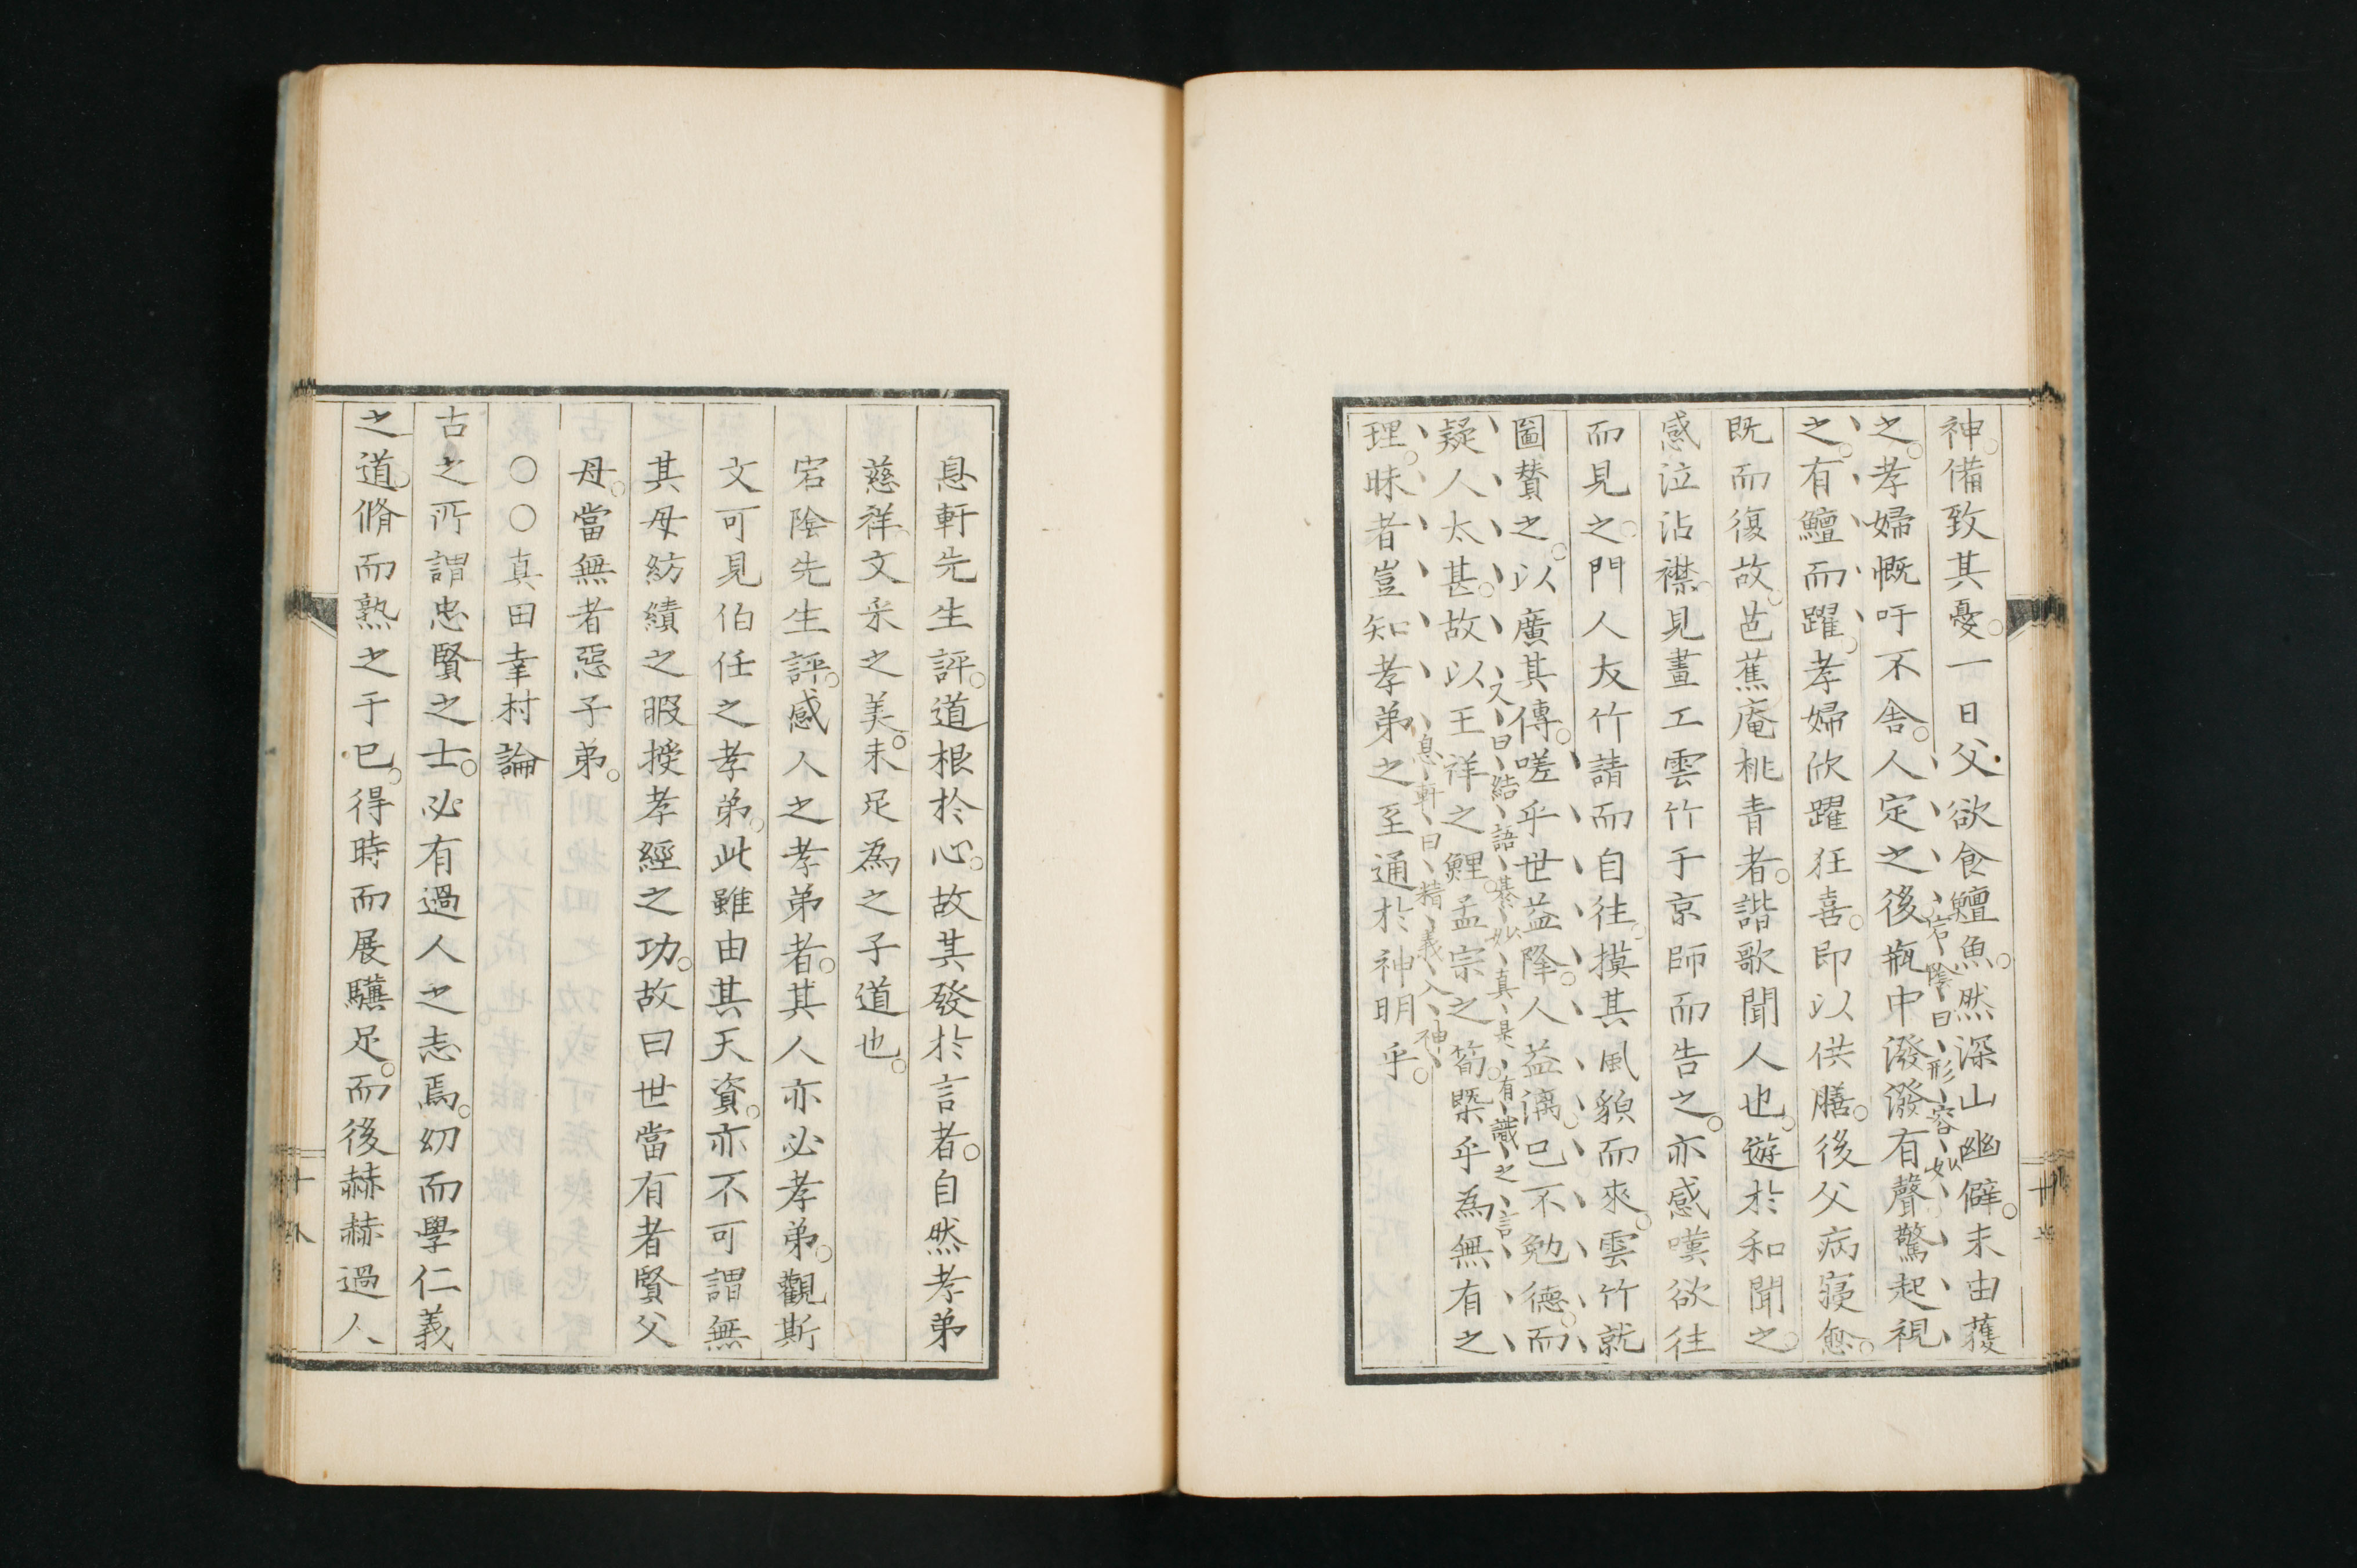 神。備致其憂。一日父欲食鱣魚。然深山幽僻。未由獲
之。孝婦慨吁不舍。人定之後瓶中潑潑有聲驚起視
宕陰曰形容妙
之。有鱣而躍。孝婦欣躍狂喜。即以供膳。後父病寖愈。
既而復故。芭蕉庵桃青者。諧歌聞人也。遊於和聞之。
感泣沾襟。見畫工雲竹于京師而告之。亦感嘆欲往
而見之。門人友竹請而自往。摸其風貌而來。雲竹就
圖贊之。以廣其傳。嗟乎世益降。人益漓。已不勉德。而
又曰結語甚妙真是有識之言
疑人太甚。故以王祥之鯉。孟宗之筍。槩乎為無有之
息軒曰精義入神
理。昧者豈知孝弟之至通於神明乎。
息軒先生評。道根於心。故其發於言者。自然孝弟
慈祥。文采之美。未足為之子道也。
宕陰先生評。感人之孝弟者。其人亦必孝弟。觀斯
文可見伯任之孝弟。此雖由其天資。亦不可謂無
其母紡績之暇授孝經之功。故曰世當有者賢父
母。當無者惡子弟。
〇〇真田幸村論
古之所謂忠賢之士。必有過人之志焉。幼而學仁義
之道。脩而熟之于已。得時而展驥足。而後赫赫過人